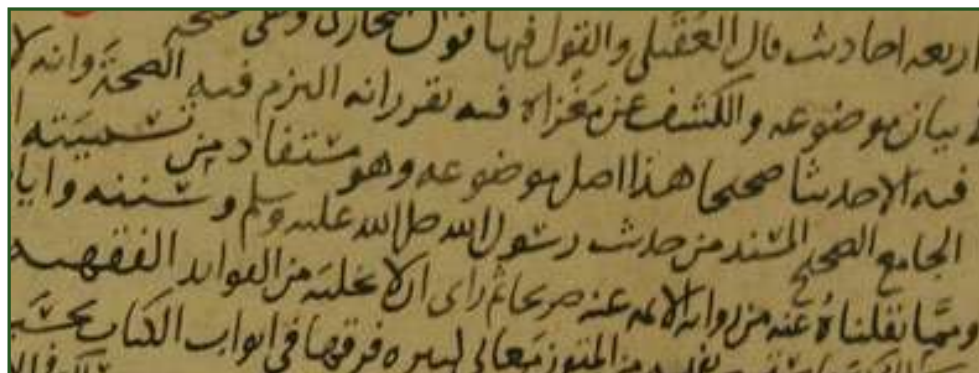 اربعه احاديث قال العقيلي والقول فيها قول البخاري وهي صحيحه
و بيان موضوعه والكشف عن مغزاه فيه تقرر انه التزم فيه الصحة وانه لا
فيه الا حديثا صحيحا هذا اصل موضوعه وهو مستفاد من تسميته
الجامع الصحيح المسند من حديث رسول الله صلى الله عليه وسلم وسننه وايا
ومما نقلناه عنه من رواية الايمه عنه صريحا ثم راى ان لا يخليه من الفوايد الفقهيه
فرقها في ابواب الكتاب بحسب